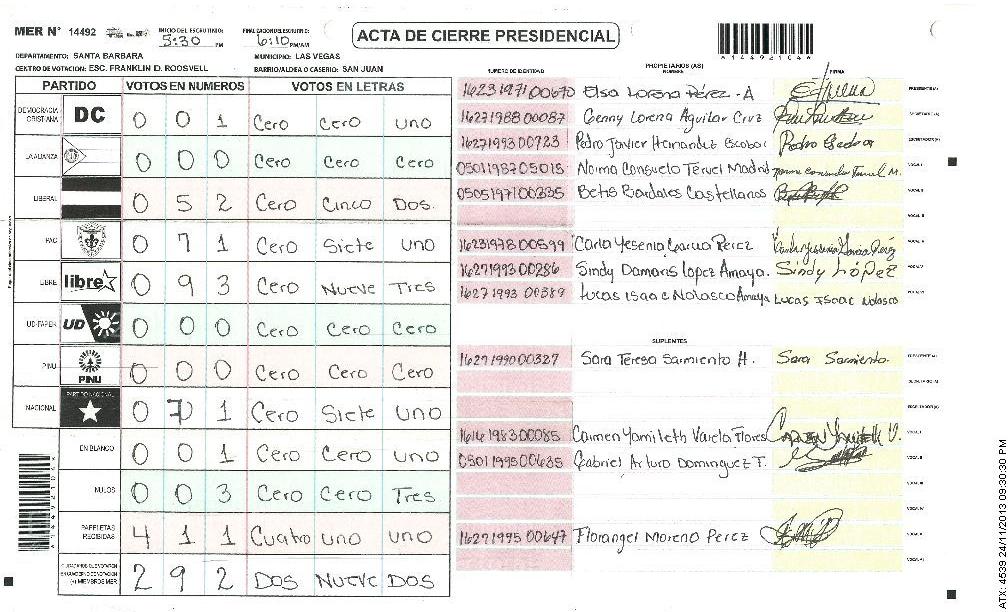 MER N° 14492
INICIO DEL ESCRUTINIO:
5:30 PM
FINALIZACION DEL ESCRUTINIO:
6:10 PM/AM
ACTA DE CIERRE PRESIDENCIAL
A14492104A
DEPARTAMENTO: SANTA BARBARA
MUNICIPIO: LAS VEGAS
CENTRO DE VOTACION: ESC. FRANKLIN D. ROOSVELL
BARRIO/ALDEA O CASERIO: SAN JUAN
PARTIDO VOTOS EN NUMEROS VOTOS EN LETRAS
DEMOCRACIA CRISTIANA DC 0 0 1 Cero Cero uno
LA ALIANZA 0 0 0 Cero Cero Cero
LIBERAL 0 5 2 Cero Cinco Dos.
PAC 0 7 1 Cero Siete uno
LIBRE libre 0 9 3 Cero Nueve Tres
UD-FAPER UD 0 0 0 Cero Cero Cero
PINU PINU 0 0 0 Cero Cero Cero
NACIONAL PARTIDO NACIONAL 0 7 1 Cero Siete uno
EN BLANCO 0 0 1 Cero Cero uno
NULOS 0 0 3 Cero Cero Tres
PAPELETAS RECIBIDAS 4 1 1 Cuatro uno uno
(+) MIEMBROS MER 2 9 2 Dos Nueve Dos
NUMERO DE IDENTIDAD PROPIETARIOS (AS) NOMBRE FIRMA
1623197100670 Elsa Lorena Pérez - A PRESIDENTE(A)
1627198800087 Genny Lorena Aguilar Cruz SECRETARIO(A)
1627199300723 Pedro Javier Hernandez Escobar Pedro Escobar ESCRUTADOR(A)
0501198705015 Norma Consuelo Teruel Madrid Norma Consuelo Teruel M. VOCAL I
0505197100335 Betis Bardales Castellanos VOCAL II
VOCAL III
1623197800599 Carla Yesenia Garcia Perez Carla Yesenia Garcia Pérez
1627199300286 Sindy Damaris Lopez Amaya. Sindy López
1627199300389 Lucas Isaac Nolasco Amaya Lucas Isaac Nolasco
SUPLENTES
1627199000327 Sara Teresa Sarmiento H. Sara Sarmiento. PRESIDENTE(A)
SECRETARIO(A)
ESCRUTADOR(A)
1614198300085 Carmen Yamileth Varela Flores Carmen Yamileth V. VOCAL I
0501199500635 Gabriel Arturo Dominguez T. VOCAL II
VOCAL III
1627199500647 Florangel Moreno Perez
ATX: 4539 24/11/2013 09:30:30 PM